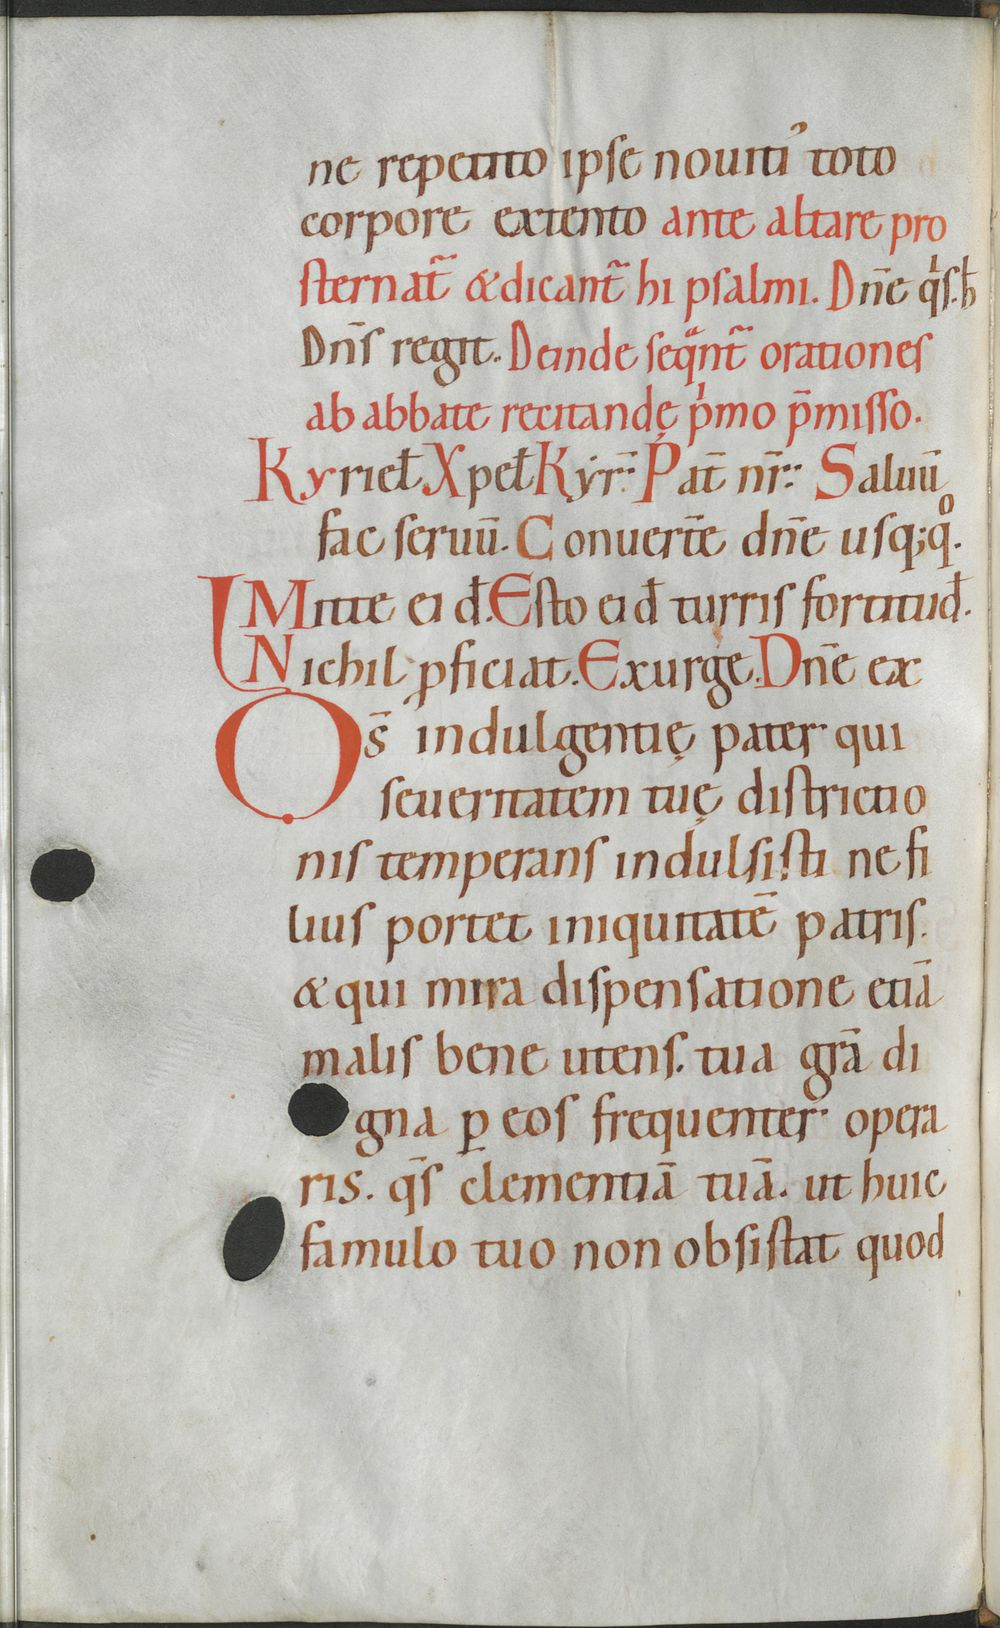 ne repetito ipse nouiti᾽ toto
corpore extento ante altare pro
sternat̄ & dicant̄ hi psalmi. Dn̄e qͥs. h̵
Dn̄s regit. Deinde seqᷓnt̄ orationes
ab abbate recitandę pͥmo p̄misso.
Kyriel̵. Xpel̵. Kyr̄: Pat̄ nr̄: Saluū
fac seruū. Conuert̄e dn̄e usq; qͦ.
Mitte ei d̵. Esto ei d̵ turris fortitud̵.
Nichil ꝓficiat. Exurge. Dn̄e ex
Ds̄ indulgentię pater qui
seueritatem tuę districtio
nis temperans indulsisti ne fi
lius portet iniquitatē patris.
& qui mira dispensatione etiā
malis bene utens. tua gr̄a di
gna ꝑ eos frequenter opera
ris. qs̄ clementiā tuā. ut huic
famulo tuo non obsistat quod